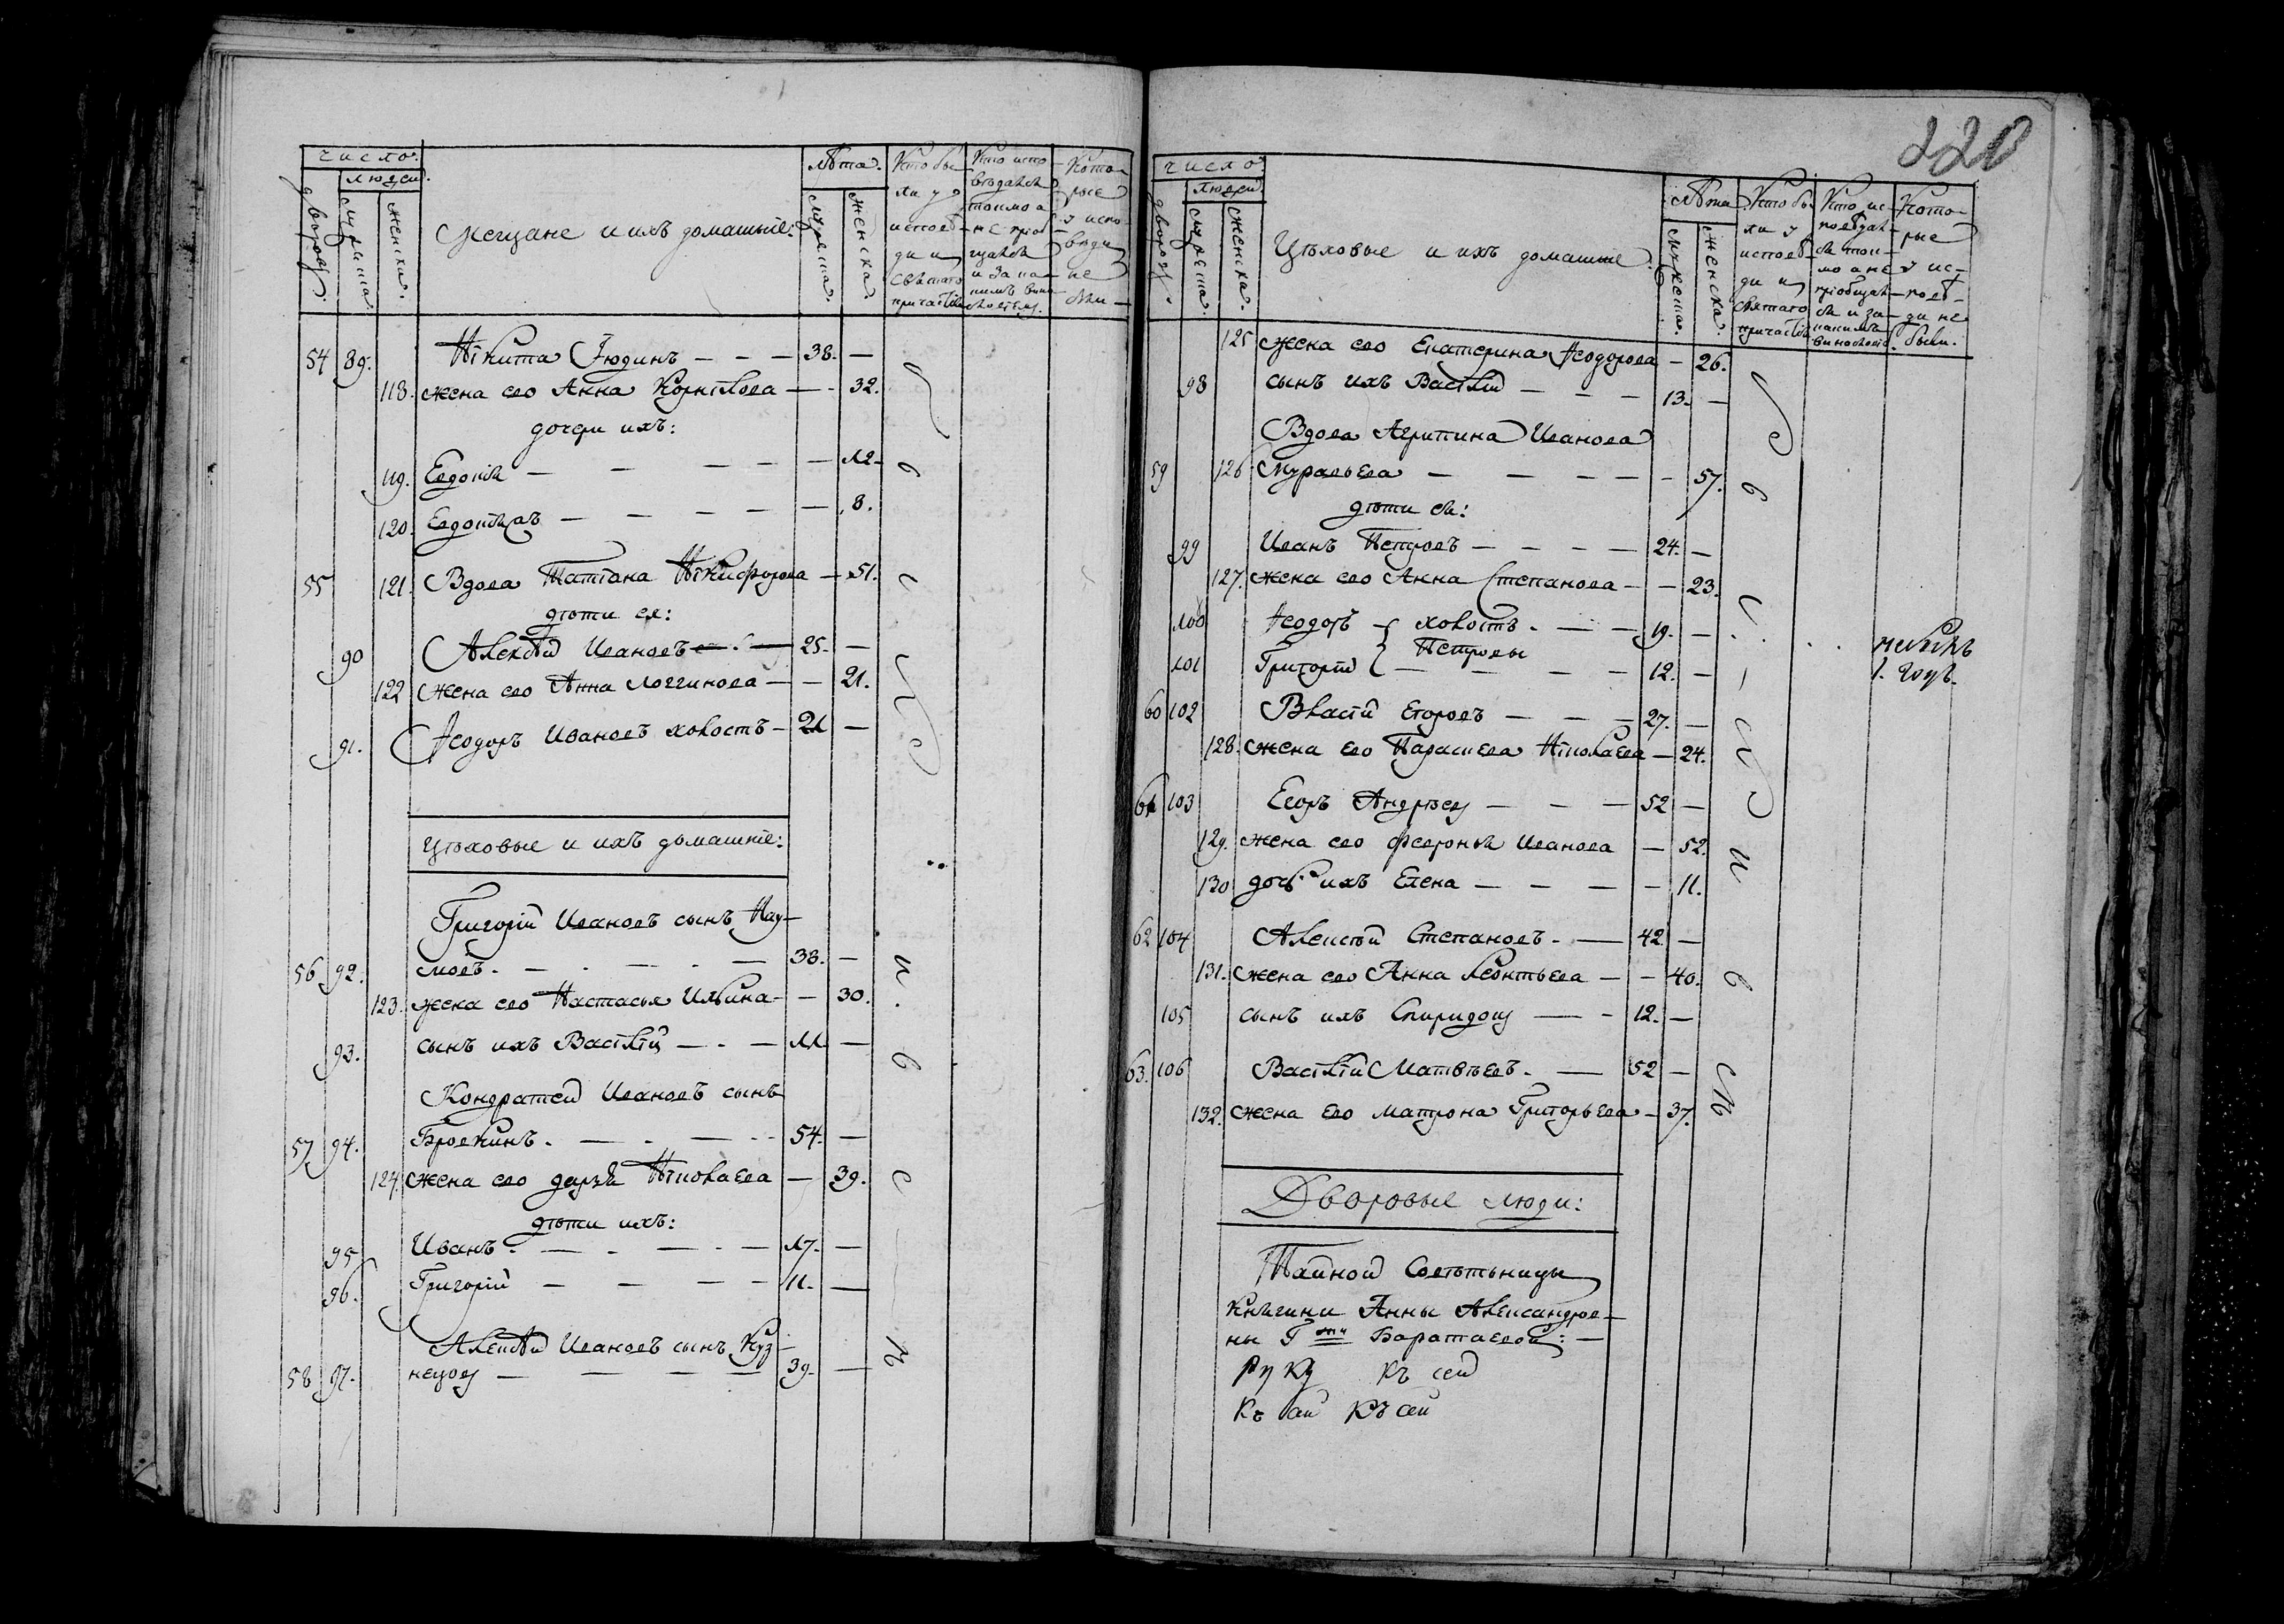 220
число.
людей.
дворовъ.
мужеска.
женска.
Мещане и ихъ домашніе:
лѣта.
мужеска.
женска.
Кто бы-
ли у
исповѣ-
ди и
святаго
причастія
Кто испо-
вѣдался
токмо а
не прiоб-
щался
и за ка-
кимъ вино-
Кото-
рые
у испо-
вѣди
не
были
54 89. Нікита Июдинъ — — — 38. —
118. жена его Анна Корнілова — - 32.
дочери ихъ:
119. Евдокія — — — — — 12.
120. Евдокія — — — — — 8.
55 121. Вдова Татіана Нікифорова — 51.
дѣти ея:
90 Алексѣй Ивановъ — 25. —
122 жена его Анна Логгинова — — 21.
91. Ѳеодоръ Ивановъ холостъ - 21 —
Цѣховые и ихъ домашніе:
Григорій Ивановъ сынъ Нау-
56 92. мовъ. — . — . — 33. —
123. жена его Настасья Ильина - — 30.
93. сынъ ихъ Васілій — . — 11 —
Кондратей Ивановъ сынъ
57 94. Бровкинъ. — . — - - 54. —
124. жена его Дарья Ніколаева — 39.
дѣти ихъ:
95 Иванъ. — . — . — 17. —
96. Григорій — — — — 11. —
Алексѣй Ивановъ сынъ Куз-
58 97. нецовъ — — — — 39. —
число
людей
дворовъ.
мужеска.
женска.
Цѣховые и ихъ домашніе
лѣта
мужеска.
женска.
Кто бы-
ли у
исповѣ-
ди и
святаго
причастія
Кто ис-
повѣдал-
ся ток-
мо а не
пріобщал-
ся и за
какимъ
Кото-
рые
у ис-
повѣ-
ди не
были.
125 жена его Екатерина Ѳеодорова — 26.
98 сынъ ихъ Васілій — — — 13. —
Вдова Агрипина Иванова
59 126 Муравьева — — — — - 57.
дѣти ея:
99 Иванъ Петровъ — — — — 24. —
127. жена его Анна Степанова — — 23.
100 Ѳеодоръ холостъ. — — 19. —
Петровы
небылъ
101 Григорій — — — — 12. —
1. годъ.
60 102 Власій Егоровъ — — — 27. —
128. жена его Параскева Ніколаева — 24.
61 103 Егоръ Андрѣевъ — — — 52 —
129. жена его Февронья Иванова — 52.
130 дочь ихъ Елена — — — — 11.
62 104 Алексѣй Степановъ. — 42 —
131. жена его Анна Леонтьева — — 40.
105 сынъ ихъ Спиридонъ — - 12. —
63. 106 Васілій Матвѣевъ. — 52 —
132. жена его Матрона Григорьева — 37.
Дворовые люди:
Тайной Совѣтьницы
Княгини Анны Александров-
ны Г жи Баратаевой: —
Къ сей
Къ сей